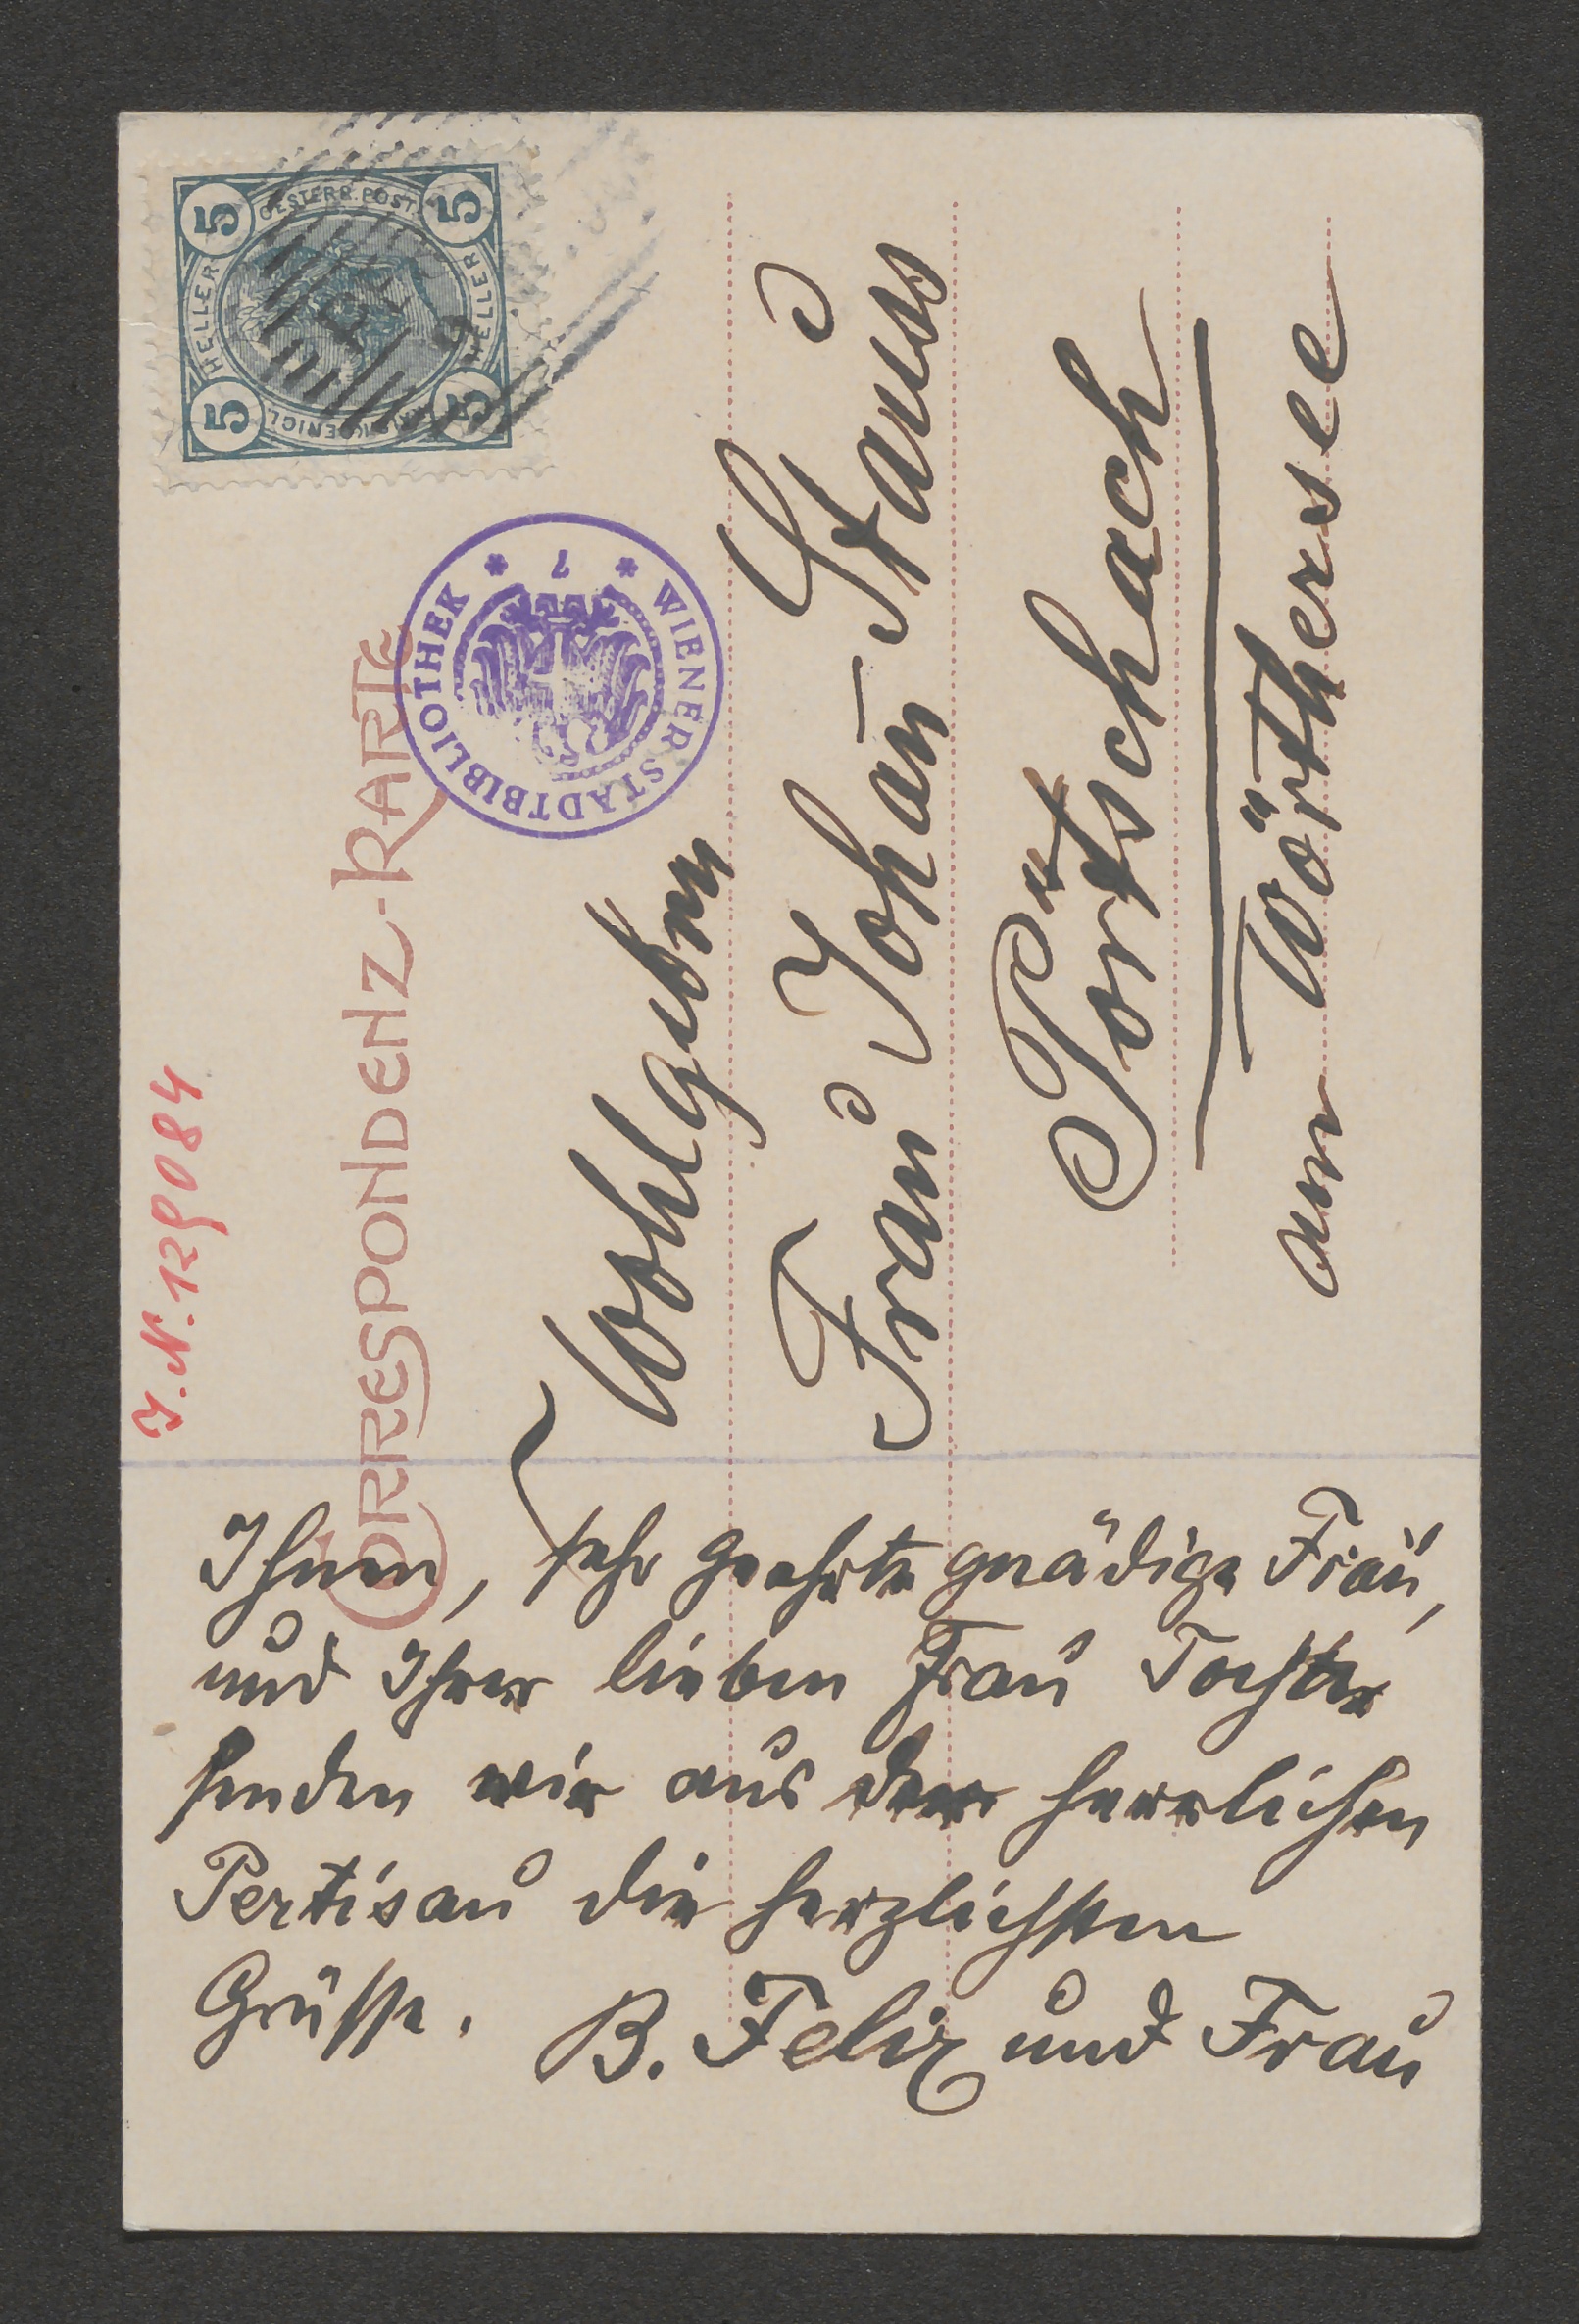 5 5 5 5
OESTERR. POST.
HELLER HELLER
J. N. 129084
CORRESPONDENZ-KARTE
WIENER STADTBIBLIOTHEK * 7 *
Wohlgeborn
Frau Johan̄ Strauss
Pörtschach
am Wörthersee
Ihnen, sehr geehrte gnädige Frau,
und Ihrer lieben Frau Tochter
senden wir aus der herrlichen
Pertisau die herzlichsten
Grüsse.
B. Felix und Frau